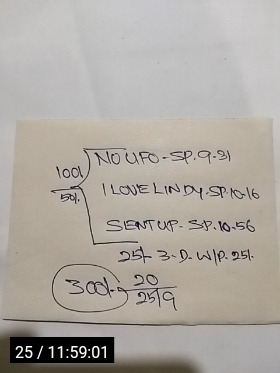 NO UFO - SP. 9-31
100/
50/.
I LOVE LINDY. SP. 10-16
SENT UP - SP. 10-56
25/- 3-D. W/P. 25/.
300/-
20
25/9
25 / 11:59:01